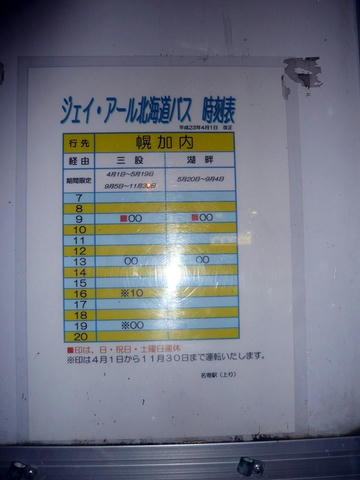 ジェイ・アール北海道バス 時刻表
平成23年4月1日 改正
行先 幌加内
経由 三股 湖畔
期間限定 4月1日～5月19日 5月20日～9月4日
9月5日～11月30日
7
8
9 ■00 ■00
10
11
12
13 00 00
14
15
16 ※10
17
18
19 ※00
20
■印は、日・祝日・土曜日運休
※印は4月1日から11月30日まで運転いたします。
名寄駅（上り）